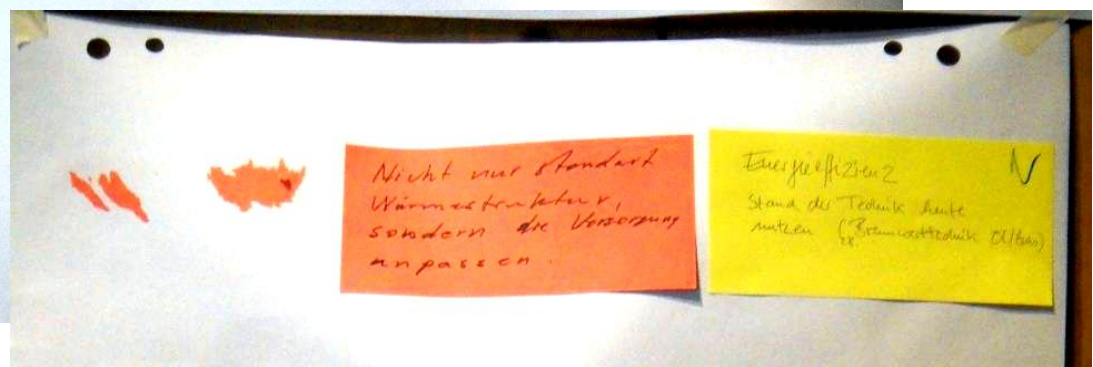 Nicht nur standart
Wärmestruktur,
sondern die Versorgung
anpassen.
Energieeffizienz
Stand der Technik heute
nutzen (z.B. Brennwerttechnik Öl/Gas)
N